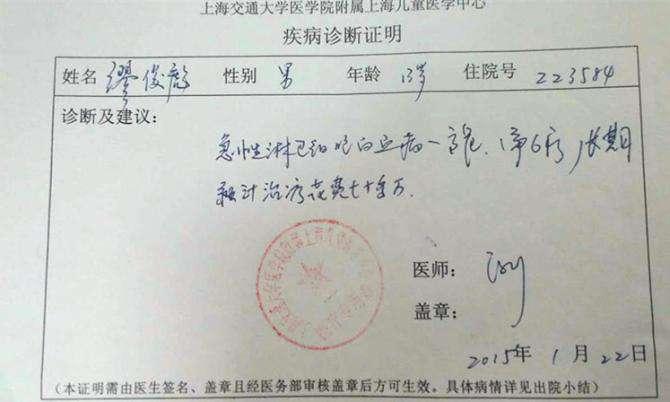 上海交通大学医学院附属上海儿童医学中心
疾病诊断证明
姓名 缪俊 性别 男 年龄 13岁 住院号 223584
诊断及建议：
急性淋巴细胞白血病—高危、 长期
预计治疗花费七十余万.
医师：
盖章：
2015年1月22日
(本证明需由医生签名、盖章且经医务部审核盖章后方可生效。具体病情详见出院小结)